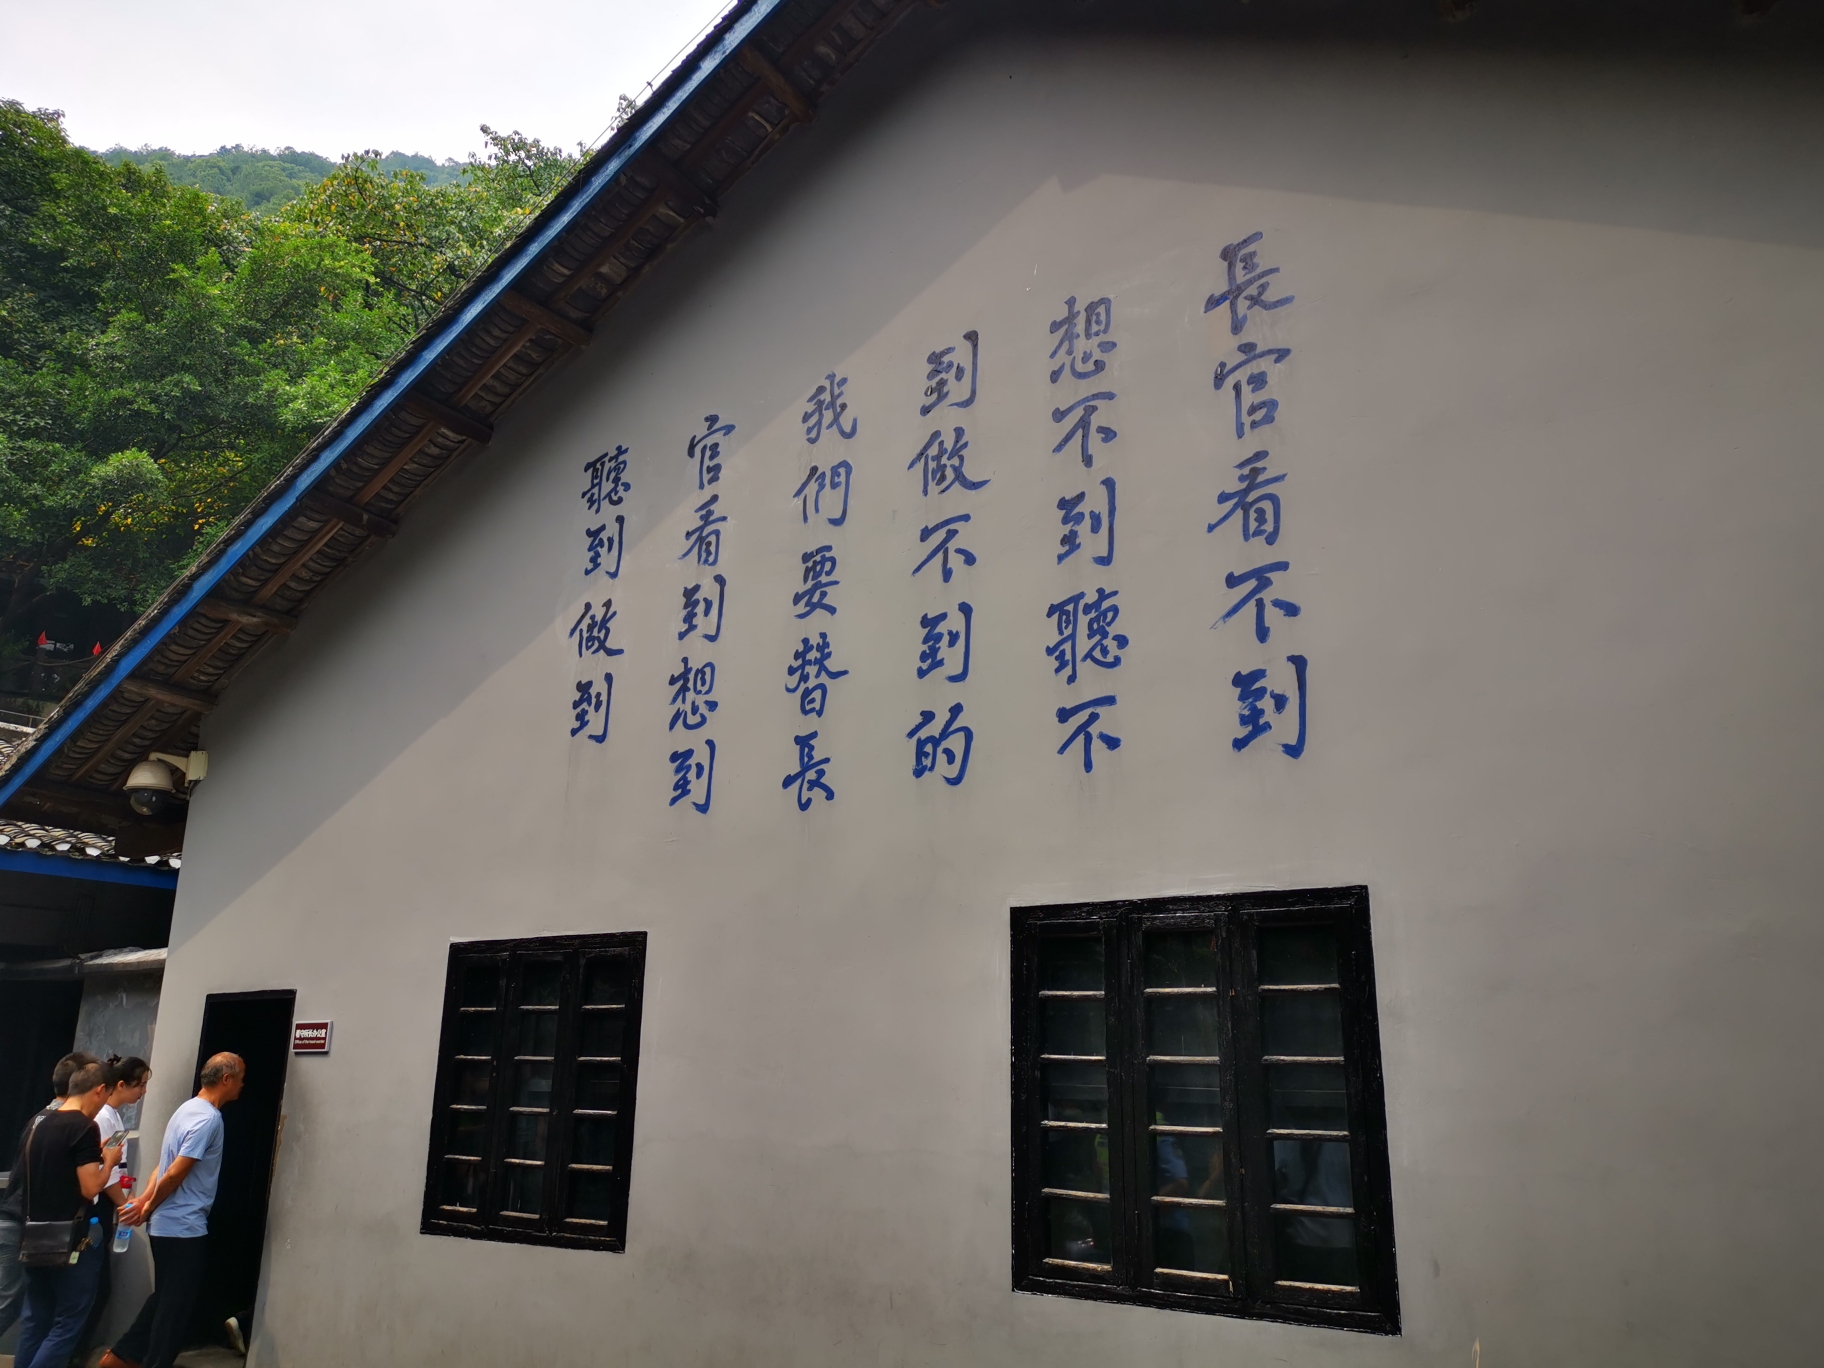 長官看不到
想不到聽不
到做不到的
我們要替長
官看到想到
聽到做到
看守所长办公室